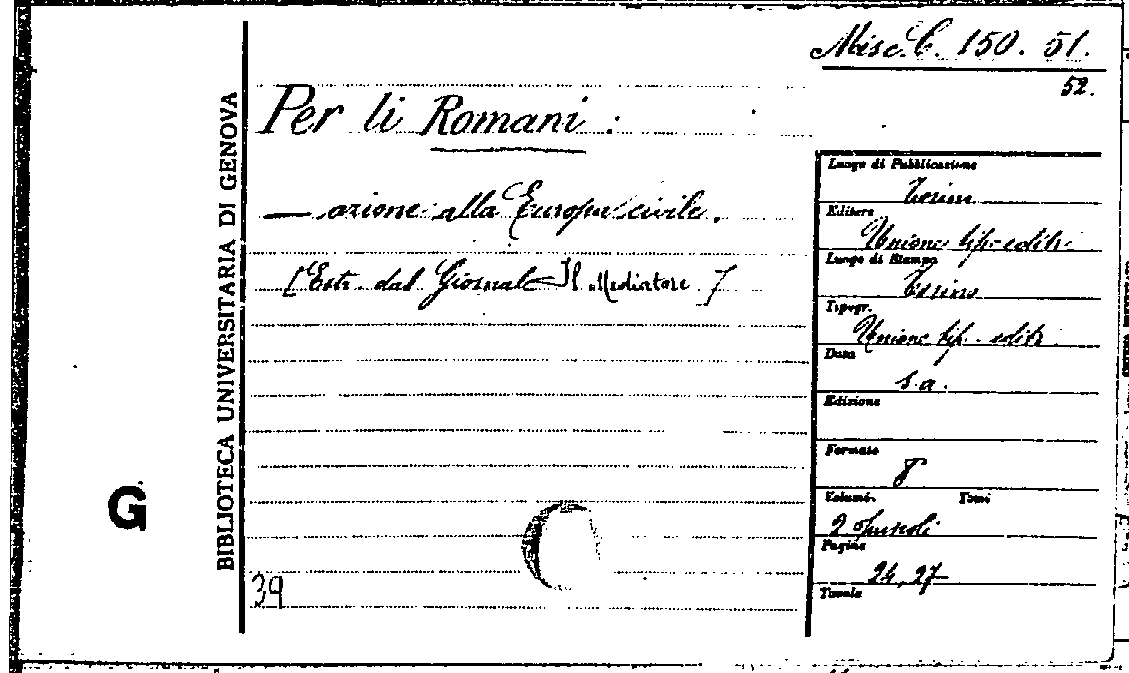 Misc. C. 150. 51.
52.
Per li Romani:
— azione alla Europa civile.
[Estr. dal Giornale Il Mediatore]
39
G
BIBLIOTECA UNIVERSITARIA DI GENOVA
Luogo di Pubblicazione
Torino
Editore
Unione tip-editr.
Luogo di Stampa
Torino
Tipogr.
Unione tip. - editr.
Data
s. a.
Edizione
Formato
8
Volumi. Tomi
2 opuscoli
Pagine
24, 27
Tavole